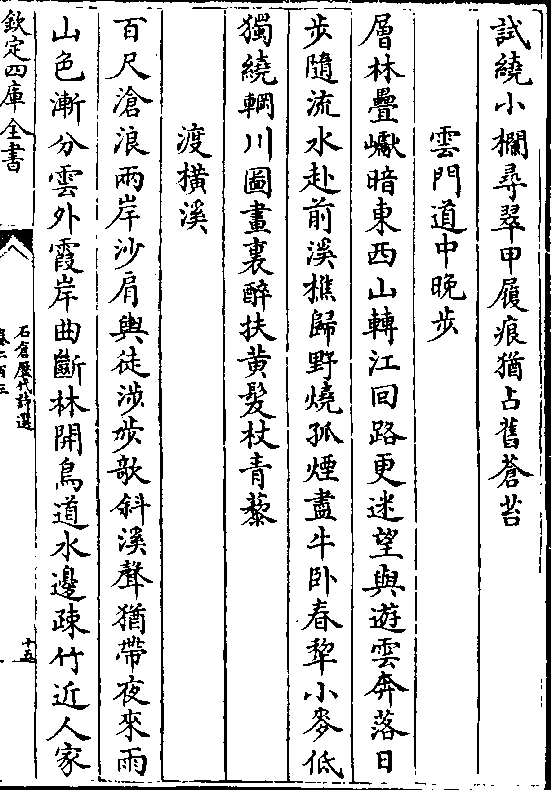 試繞小欄尋翠甲屐痕猶占舊蒼苔
雲門道中晚步
層林疊巘暗東西山轉江回路更迷望與遊雲奔落日
步隨流水赴前溪樵歸野燒孤煙盡牛卧春犂小麥低
獨繞輞川圖畫裏醉扶黄髮杖青藜
渡横溪
百尺滄浪兩岸沙肩輿徒涉步歌斜溪聲猶帶夜來雨
山色漸分雲外霞岸曲斷林開鳥道水邊疎竹近人家
欽定四庫全書
石倉歷代詩選
卷二百三
十五